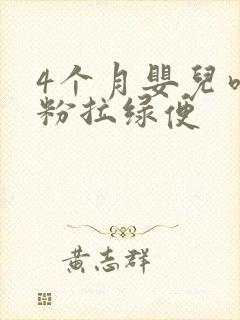 4个月嬰兒
粉拉绿便
黄志群